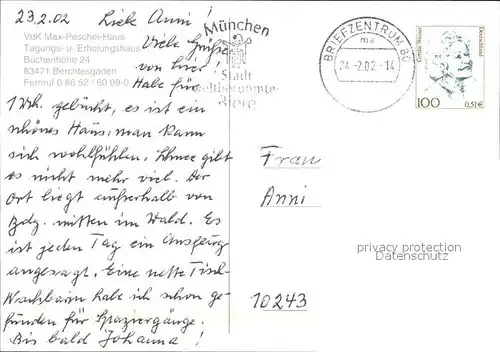 23.2.02 Liebe Anni!
VdK Max-Peschel-Haus
Tagungs- u Erholungshaus
Buchenhöhe 24
83471 Berchtesgaden
Fernruf 0 86 52 / 60 09-0
Viele Grüße
von hier!
Habe für
1 Wh. gebucht, es ist ein
schönes Haus, man kann
sich wohlfühlen. Schnee gibt
es nicht mehr viel. Der
Ort liegt außerhalb von
Bdg. mitten im Wald. Es
ist jeden Tag ein Ausflug
angesagt. Eine nette Tisch-
Nachbarin habe ich schon ge-
funden für Spaziergänge.
Bis bald Johanna!
München
Stadt
weltberühmter
Biere
BRIEFZENTRUM 80
ma
24.-2.02-14
Deutschland
100
0,51€
Frau
Anni
10243
privacy protection
Datenschutz